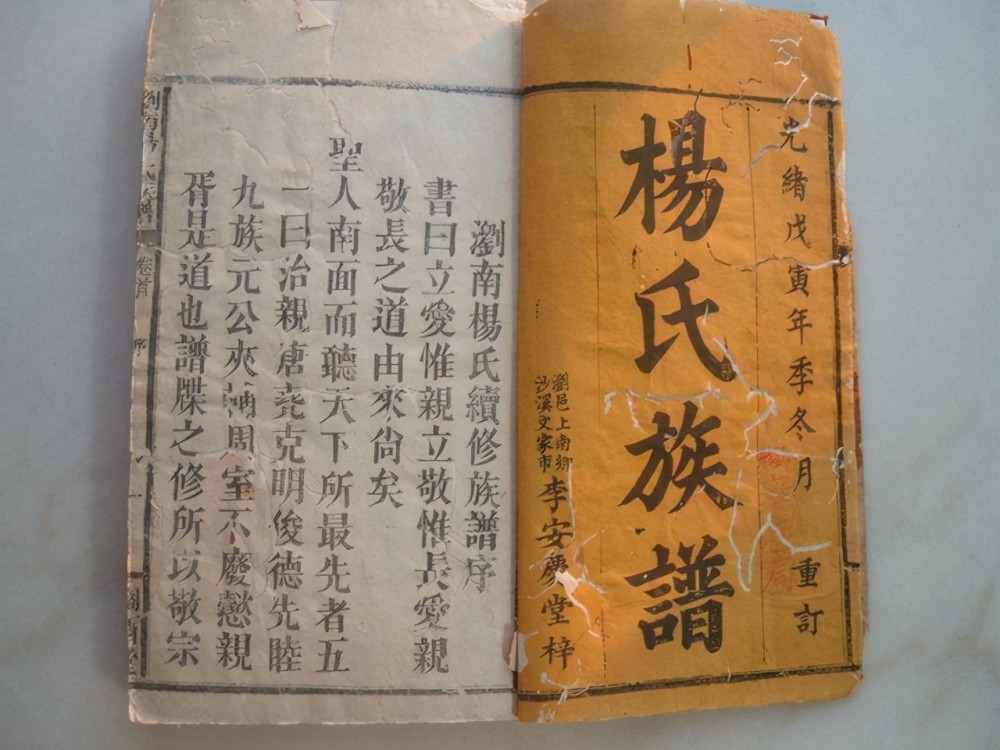 光緒戊寅年季冬月重訂
楊氏族譜
瀏邑上南鄉
沙溪文家市
李安慶堂梓
瀏南楊氏續修族譜序
書曰立愛惟親立敬惟長愛親
敬長之道由來尙矣
聖人南面而聽天下所最先者五
一曰治親唐堯克明俊德先睦
九族元公夾輔周室不廢懿親
胥是道也譜牒之修所以敬宗
卷首
序